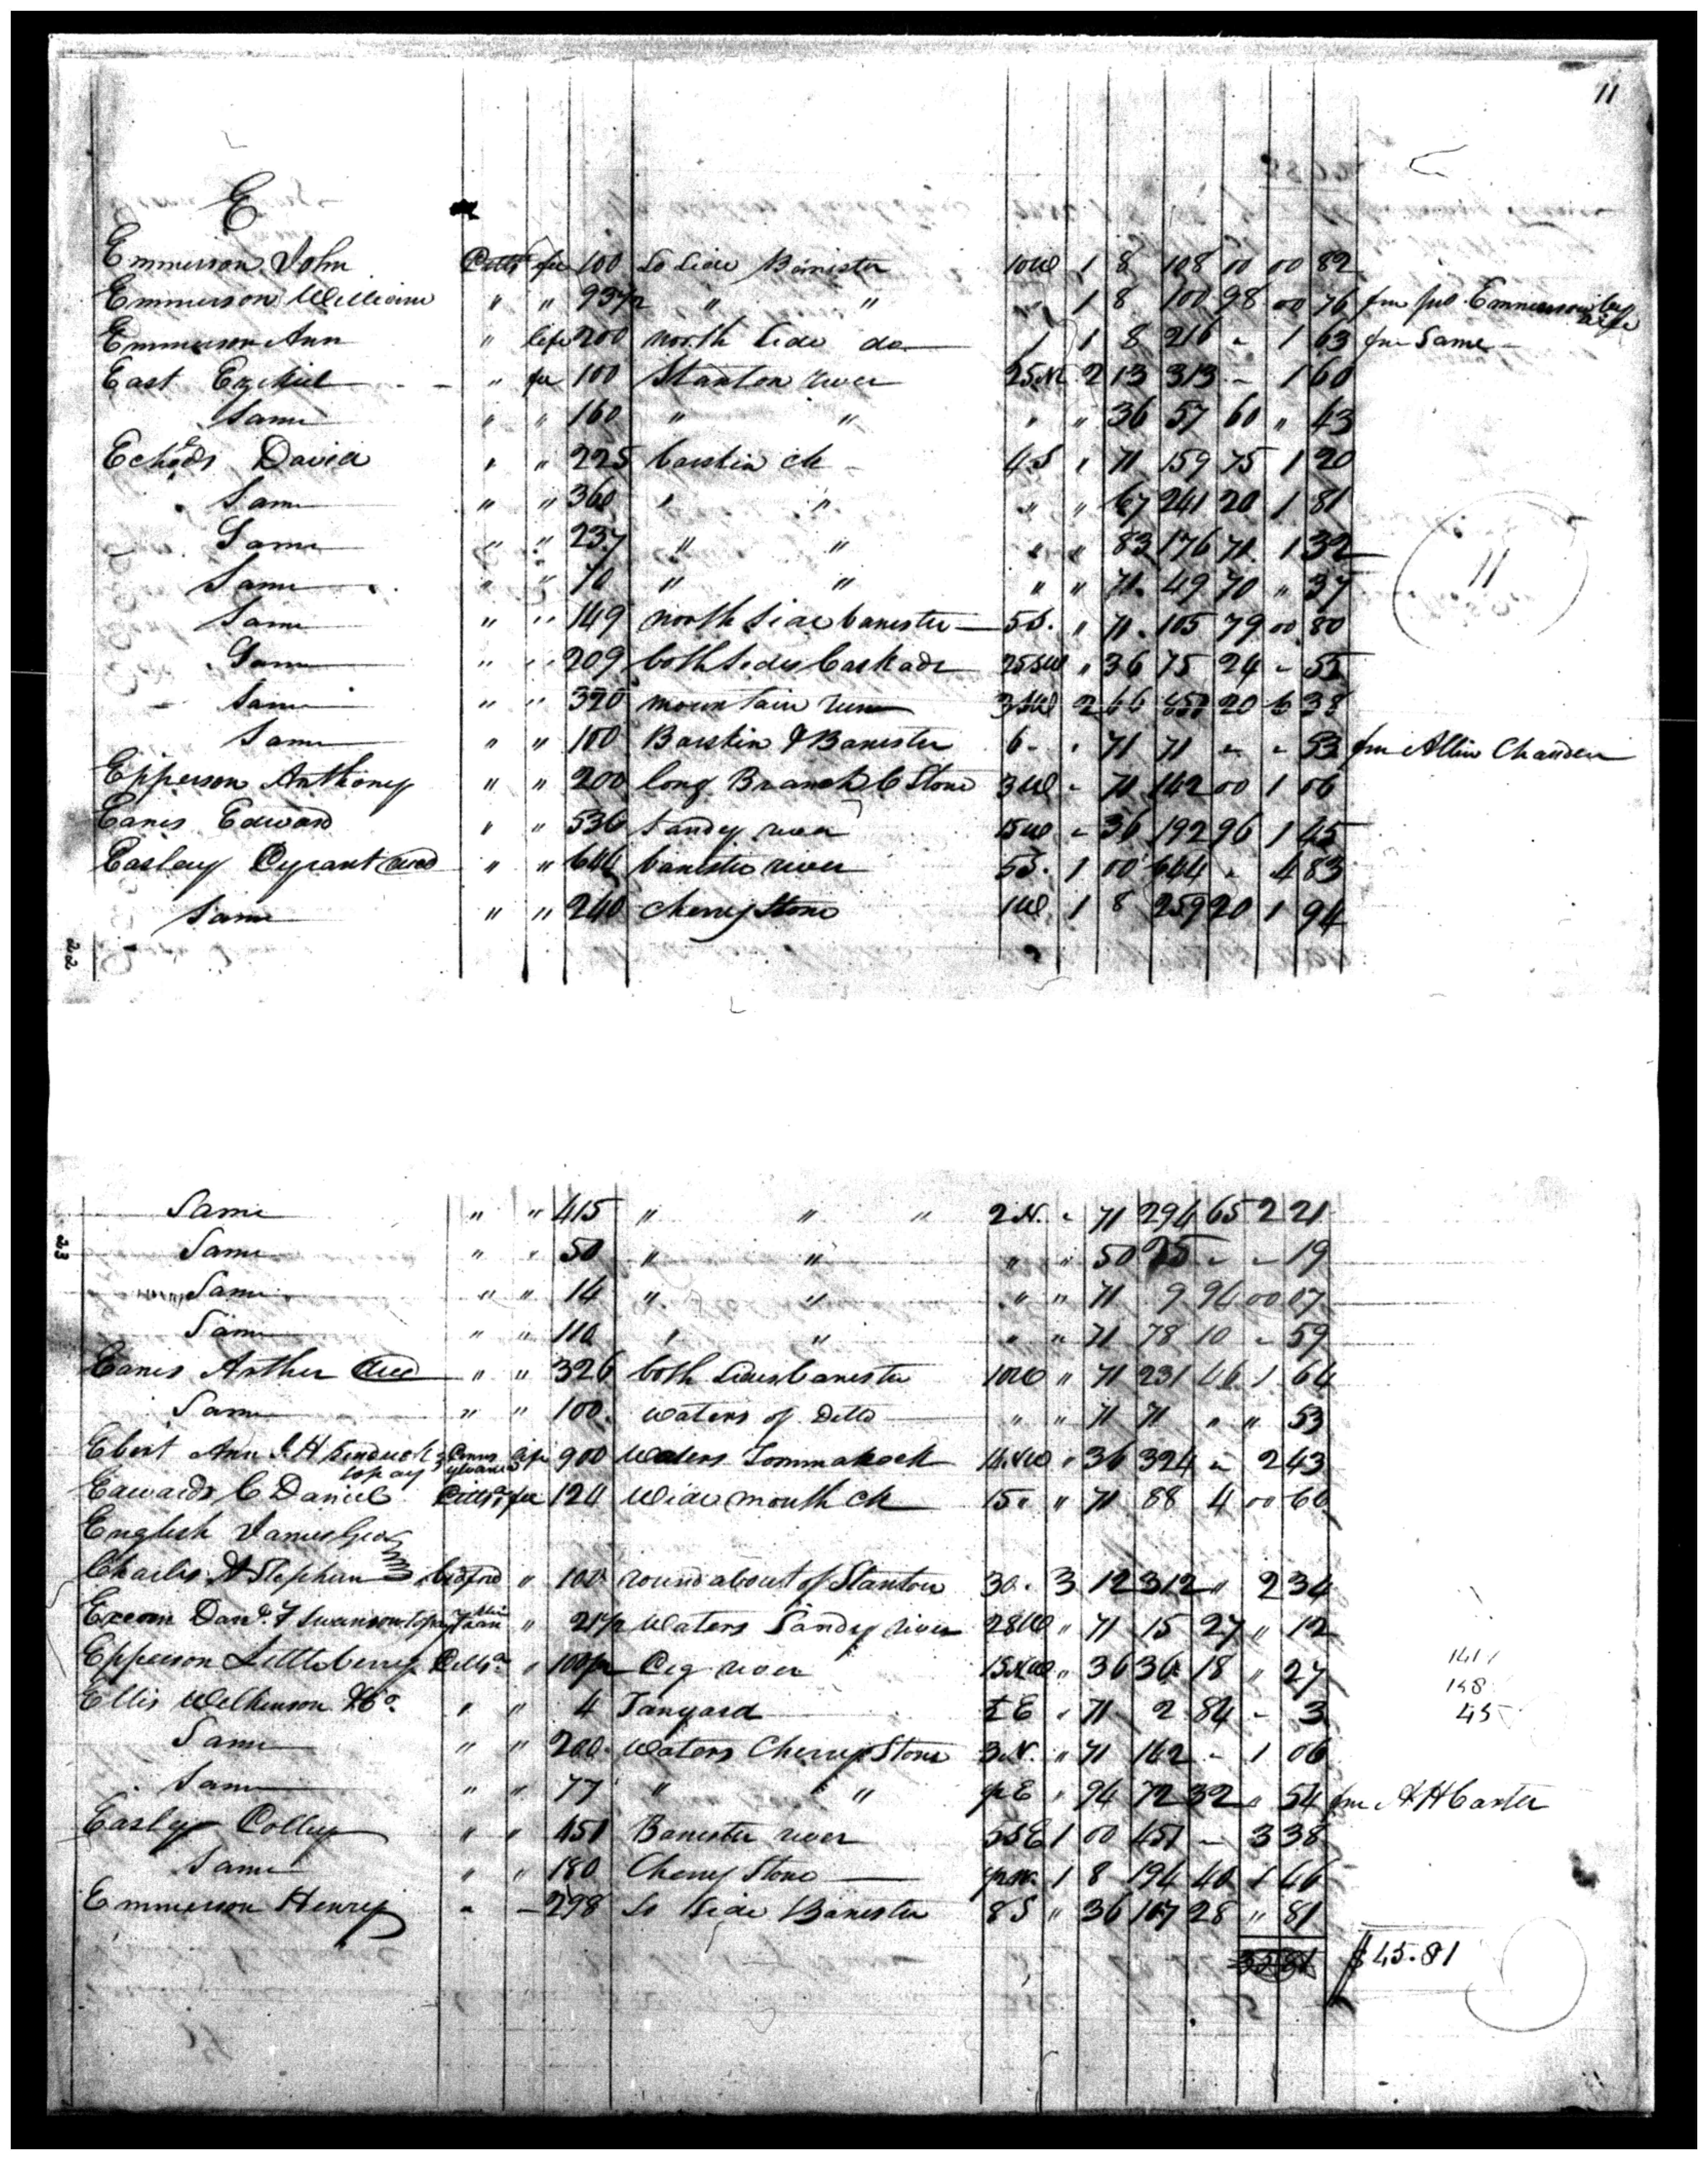 11
E
Emmerson John Pitts fee 100 So Side Banister 10 W 1 8 108 00 00 82
Emmerson William " " 93 1/2 " " " 1 8 100 98 00 76 fm Jno Emmerson by
Emmerson Ann " life 200 North Side do 1 8 216 " 1 63 fm Same
East Ezekiel " fee 100 Stanton river 25 N 2 13 313 - 1 60
Same " " 160 " " " " 36 57 60 " 43
Echols David " " 225 bearskin ck 4 S " 71 159 75 1 20
Same " " 360 " " " " 67 241 20 1 81
Same " " 237 " " " " 83 176 71 1 32
Same " " 70 " " " " 71 49 70 " 37
Same " " 149 north side banister 5 S. " 71 105 79 00 80
Same " " 209 both sides Caskade 25 SW " 36 75 24 - 55
Same " " 320 mountain run 3 SW 2 66 20 6 38
Same " " 100 Bearskin & Banister 6 " 71 71 " " 53 fm Allin Chandler
Epperson Anthony " " 200 long Branch C Stone 3 W " 71 142 00 1 06
Eanes Edward " " 536 Sandy river 15 W " 36 192 96 1 45
Easley Pyrant decd " " 644 banister river 5 S. 1 00 644 - 4 83
Same " " 240 cherry Stone 1 W 1 8 259 20 1 94
22
23
Same " " 415 " " " 2 N. " 71 294 65 2 21
Same " " 50 " " " " 50 25 - - 19
Same " " 14 " " " " 71 9 94 00 07
Same " " 110 " " " " 71 78 10 " 59
Eanes Arther decd " " 326 both sides banister 10 W " 71 231 46 1 64
Same " " 100 waters of Ditto " " 71 71 " " 53
Ebert Ann J. H to pay Pennsylvania life 900 Waters Tommahock 14 NW " 36 324 " 2 43
Edwards C Daniel Pitts fee 124 Wide mouth ck 15 " " 71 88 4 00 66
English James Geo
Charles & Stephen bedford " 100 round about of Stanton 30 " 3 12 312 " 2 34
Dan. F Swanson to pay " 21 1/2 Waters Sandy river 28 W " 71 15 27 " 12
Epperson Littleberry Pittsa " 100 1/2 Pig river 15 NW " 36 36 18 " 27
Ellis Wilkinson & Co " " 4 Tanyard 1/2 E " 71 2 84 " 3
Same " " 200 Waters Cherry Stone 3 N. " 71 142 " 1 06
Same " " 77 " " 1/2 E " 94 72 32 " 54 fm A H Carter
Easley Polley " " 451 Banister river 5 SE 1 00 451 - 3 38
Same " " 180 Cherry Stone 1/2 N. 1 8 194 40 1 46
Emmerson Henry " - 298 So Side Banister 8 S " 36 107 28 " 81
$45.81